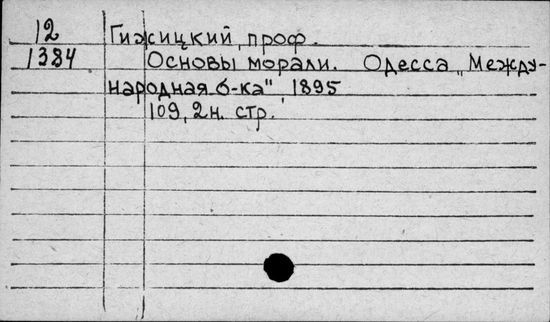 12 Гижицкий, проф.
1384 Основы морали. Одесса „Между-
народная б-ка" 1895
109, 2 н. стр.